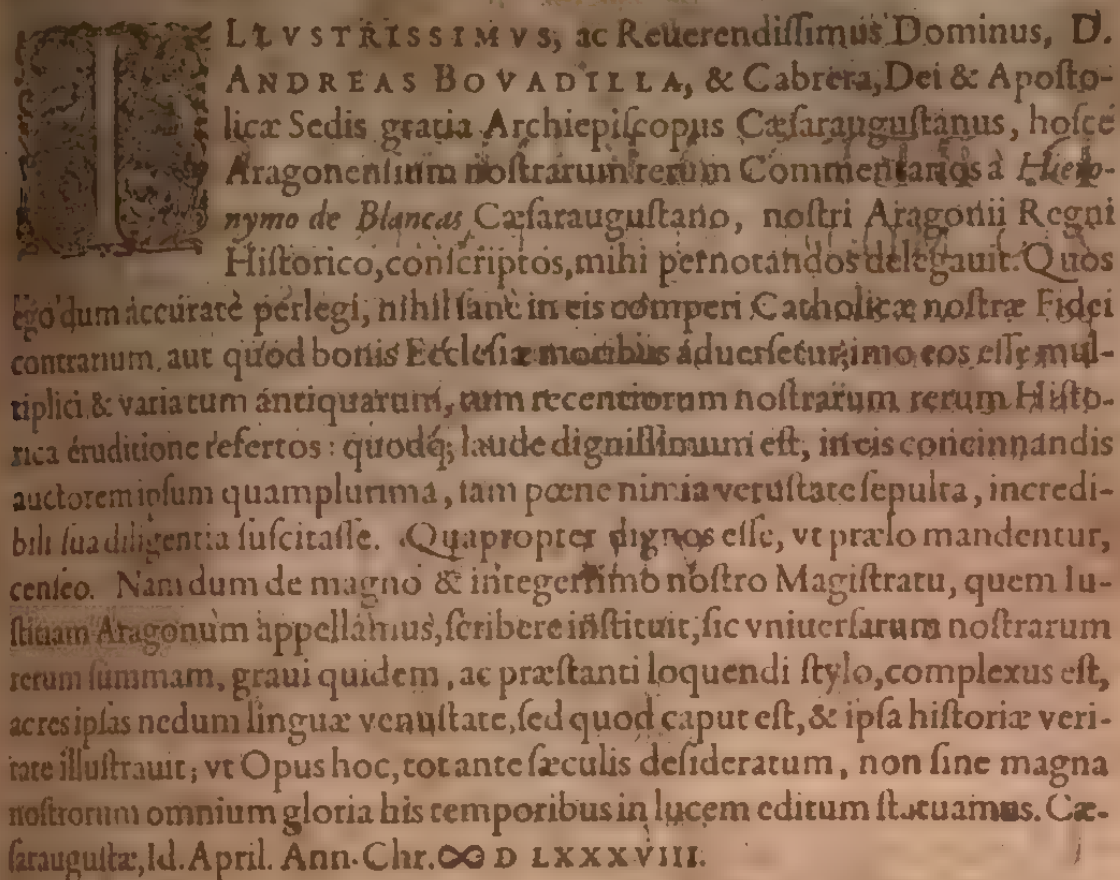 ILLVSTRISSIMVS, ac Reuerendiſſimus Dominus, D.
ANDREAS BOVADILLA, & Cabrera, Dei & Apoſto-
licæ Sedis gratia Archiepiſcopus Cæſarauguſtanus, hoſce
Aragonenſium noſtrarum rerum Commentarios à Hiero-
nymo de Blancas Cæſarauguſtano, noſtri Aragonii Regni
Hiſtorico, conſcriptos, mihi pernotandos delegauit. Quos
ego dum accuratè perlegi, nihil ſanè in eis comperi Catholicæ noſtræ Fidei
contrarium, aut quod bonis Eccleſiæ moribus aduerſetur; imo eos eſſe mul-
tiplici & varia tum antiquarum, tum recentiorum noſtrarum rerum Hiſto-
rica éruditione refertos: quodq́; laude digniſſimum eſt, in eis concinnandis
auctorem ipſum quamplurima, iam pœne nimia vetuſtate ſepulta, incredi-
bili ſua diligentia ſuſcitaſſe. Quapropter dignos eſſe, vt prælo mandentur,
cenſeo. Nam dum de magno & integerrimo noſtro Magiſtratu, quem Iu-
ſtitiam Aragonum appellamus, ſcribere inſtituit, ſic vniuerſarum noſtrarum
rerum ſummam, graui quidem, ac præſtanti loquendi ſtylo, complexus eſt,
ac res ipſas nedum linguæ venuſtate, ſed quod caput eſt, & ipſa hiſtoriæ veri-
tate illuſtrauit; vt Opus hoc, tot ante ſæculis deſideratum, non ſine magna
noſtrorum omnium gloria his temporibus in lucem editum ſtatuamus. Cæ-
ſarauguſtæ, Id. April. Ann. Chr. ∞ D LXXXVIII.